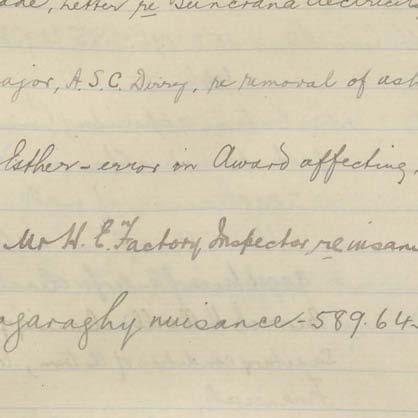 Letter re Buncrana Electricit
ajor, A.S.C. Derry, re removal of ash
Esther - error in Award affecting
Mr H. E. Factory Inspector re insani
agaraghy nuisance - 589.64